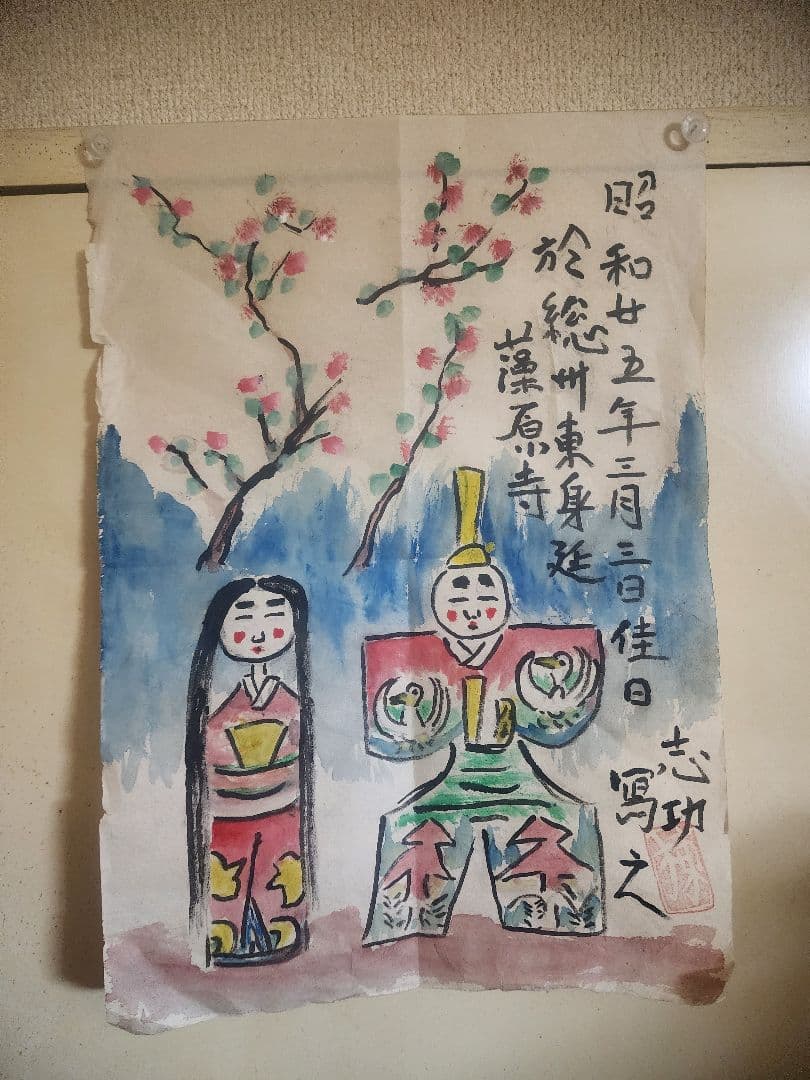 昭和廿五年三月三日佳日
於総卅東身延
藻原寺
志功
寫之